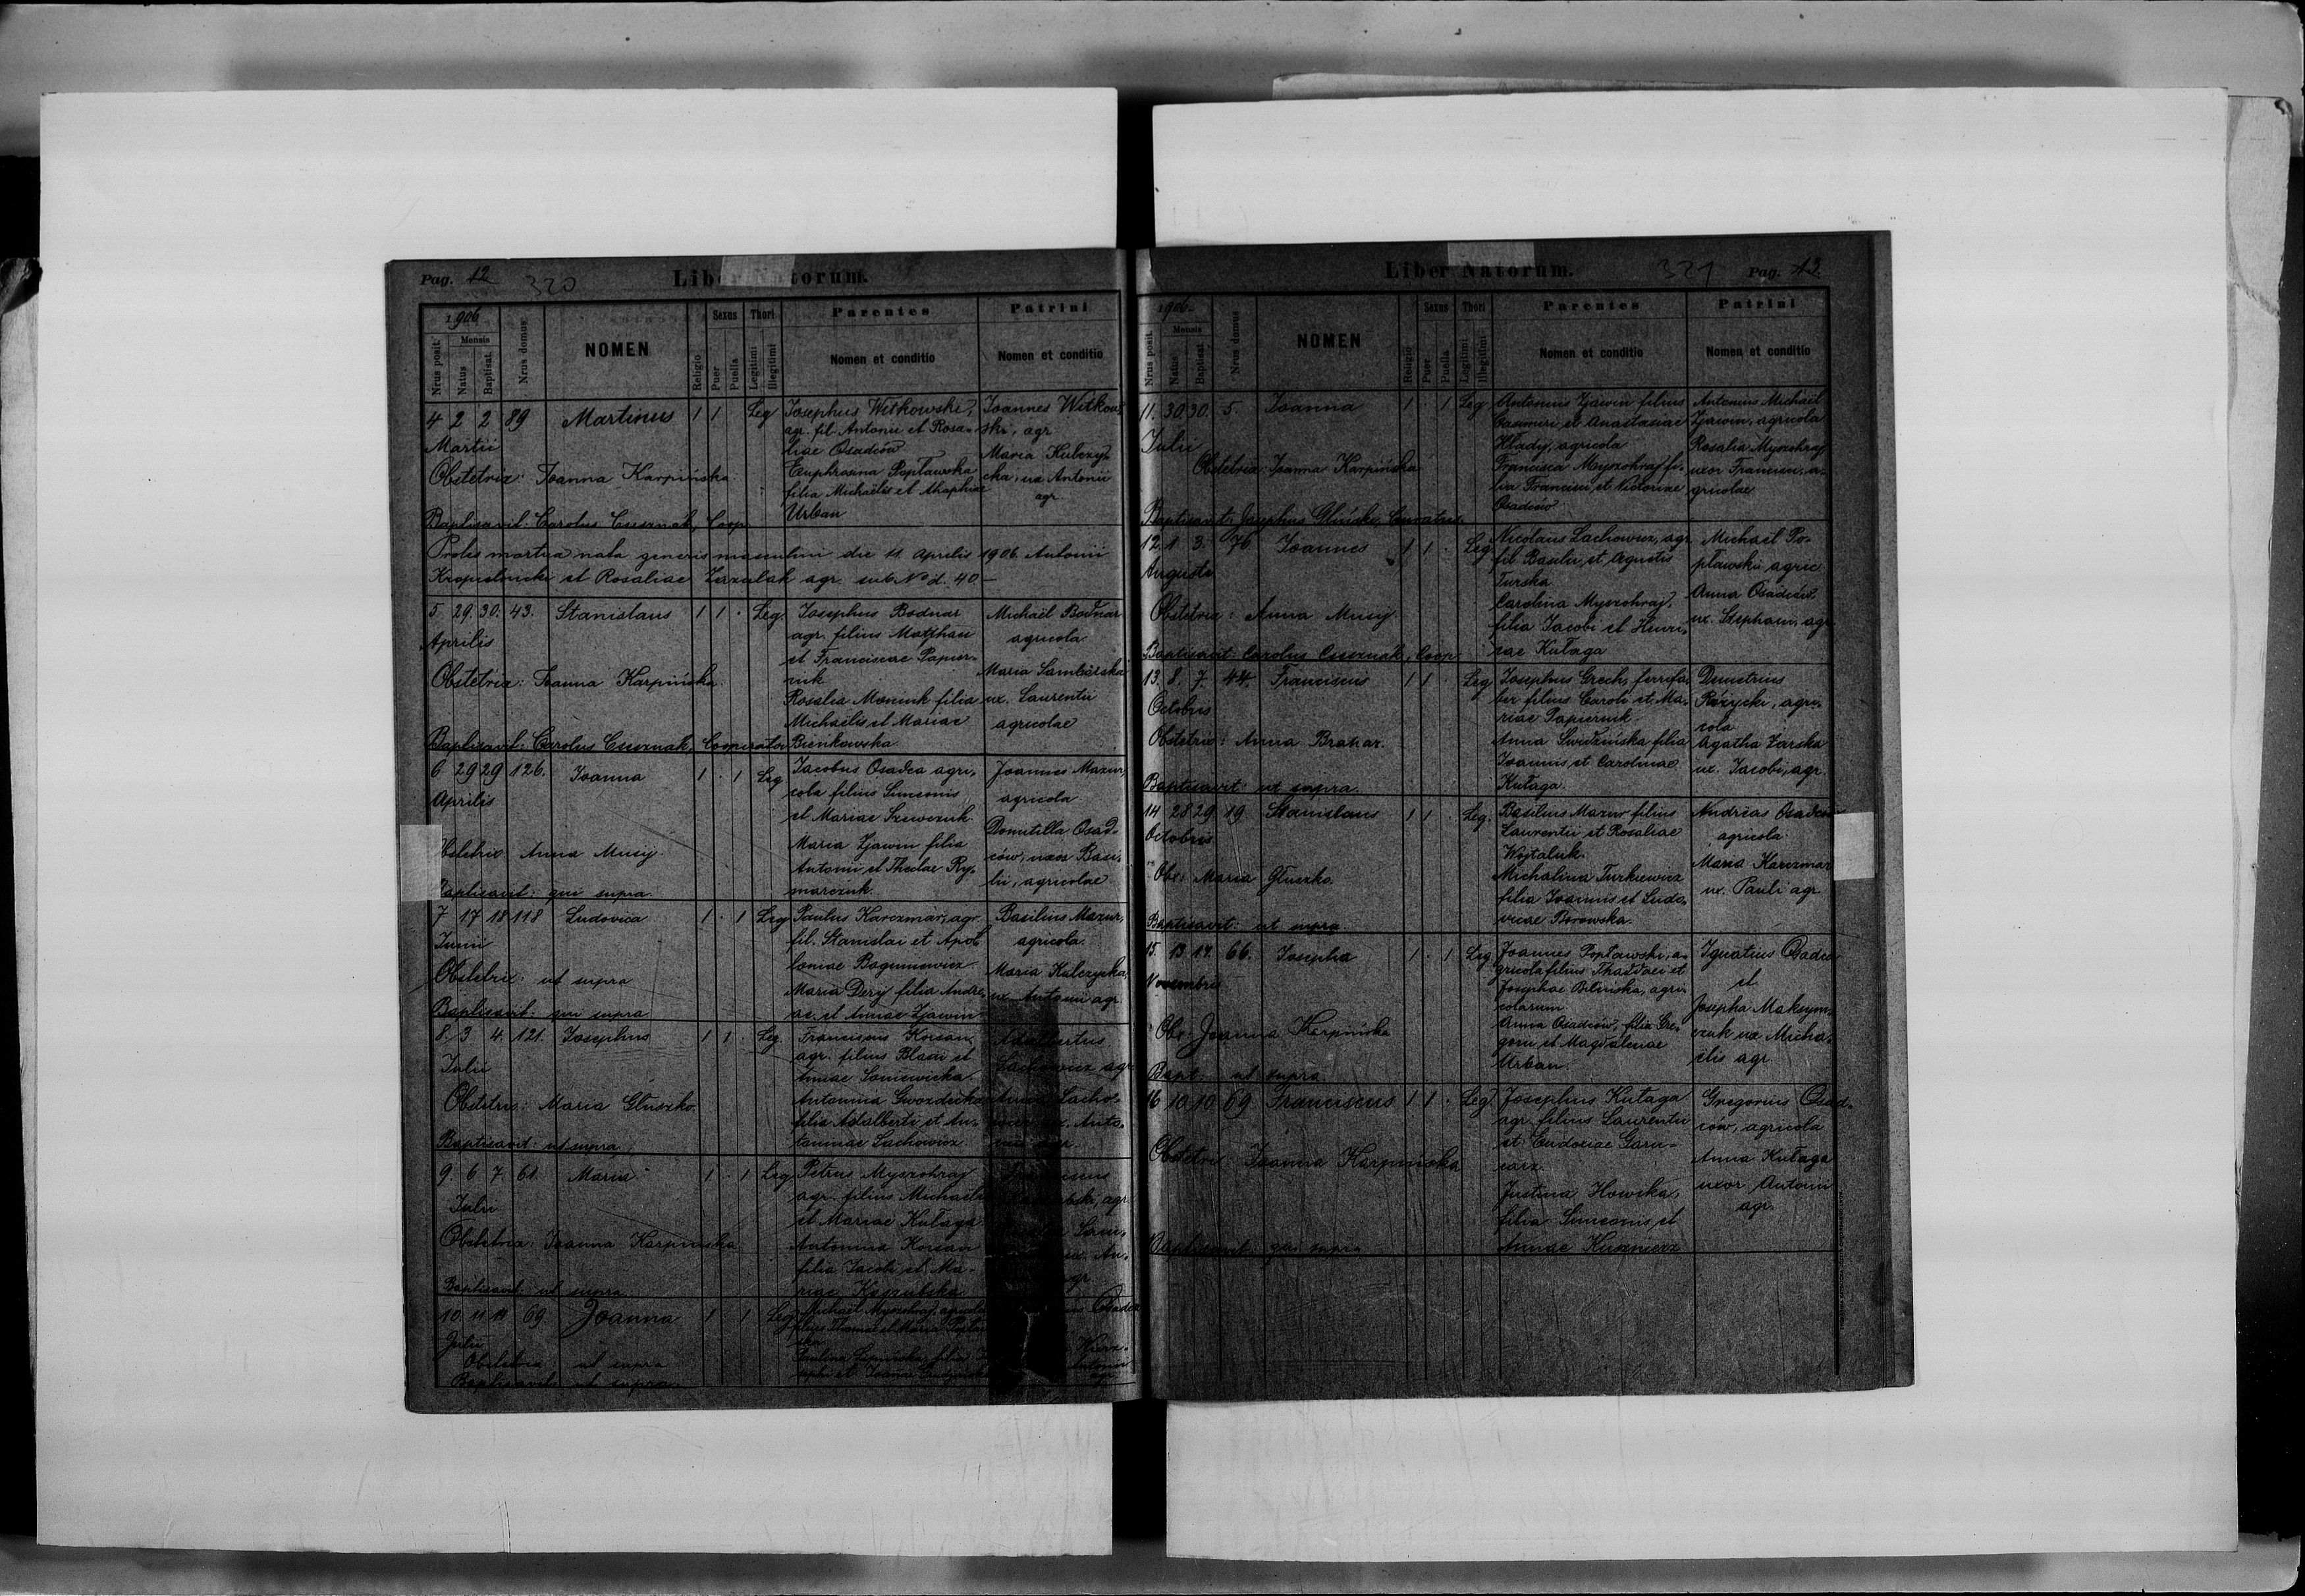 Pag. 12
320
Liber Natorum.
1906
Nrus posit.
Mensis
Natus
Baptisat.
Nrus domus
NOMEN
Religio
Sexus
Puer
Puella
Thori
Legitimi
Illegitimi
Parentes
Nomen et conditio
Patrini
Nomen et conditio
4 2 2 89 Martinus 1 1 Leg
Martii
Obstetrix: Joanna Karpińska.
Baptisavit: Carolus Csesznák, Coop.
Josephus Witkowski,
agr. fil. Antonii et Rosa-
liae Osadców
Euphrosina Popławska
filia Michaëlis et
Urban
Joannes Witkow-
ski, agr
Maria Kulczyc-
cka, ux Antonii
agr
Proles mortua nata generis masculini die 11 Aprilis 1906 Antonii
et Rosaliae agr. sub No d. 40 —
5 29. 30. 43. Stanislaus 1 1 . Leg.
Aprilis
Obstetrix: Joanna Karpińska.
Baptisavit: Carolus Csesznak, Cooperator
Josephus Bodnar
agr. filius Matthaei
et Franciscae Papier-
nik
Rosalia filia
Michaëlis et Mariae
Bieńkowska
Michaël Bodnar
agricola
Maria
ux. Laurentii
agricolae
6 29 29 126. Joanna 1 . 1 Leg
Aprilis
Obstetrix Anna Musij.
Baptisavit: qui supra.
Jacobus Osadca agri-
cola filius Simeonis
et Mariae Szewczuk.
Maria Zjawin filia
Antonii et Theclae Ry-
marczuk.
Joannes Mazur,
agricola
Domitilla Osad-
ców, uxor Basi-
lii, agricolae
7 17 18 118 Ludovica 1 . 1 Leg
Junii
Obstetrix: ut supra
Baptisavit: qui supra
Paulus Karczmar, agr.
fil. Stanislai et Apol-
loniae Boguniewicz
Maria Dery filia Andre-
ae et Annae Zjawin
Basilius Mazur,
agricola.
Maria Kulczycka,
ux. Antonii agr.
8. 3 4. 121. Josephus 1 1 . Leg.
Julii
Obstetrix: Maria Głuszko.
Baptisavit: ut supra.
Franciscus Korsan
agr. filius Blasii et
Annae
Antonina Gwozdecka
filia Adalberti et An-
Lachowicz.
Adalbertus
Lachowicz agr
Anna Lacho-
ux. Anto-
agr
9. 6 7. 61. Maria 1 . 1 Leg
Julii
Obstetrix: Joanna Karpińska
Baptisavit: ut supra
Petrus Myszohraj
agr. filius Michaëlis
et Mariae Kułaga
Antonina Korsan
filia Jacobi et Ma-
riae
10. 11 14 69. Joanna 1 . 1 Leg
Julii
Obstetrix: ut supra
Baptisavit: ut supra
Michaël Myszohraj, agricola
filius Thomae et Maria
filia
Osadca
Antonii
agr.
Liber Natorum.
321
Pag. 13
1906
Nrus posit.
Mensis
Natus
Baptisat.
Nrus domus
NOMEN
Religio
Sexus
Puer
Puella
Thori
Legitimi
Illegitimi
Parentes
Nomen et conditio
Patrini
Nomen et conditio
11. 30 30. 5. Joanna 1 . 1 Leg
Julii
Obstetrix: Joanna Karpińska
Baptisavit: Josephus Gliński, Curatus.
Antonius Zjawin filius
Casimiri, et Anastasiae
Hłady, agricola
Francisca Myszohraj fi-
lia Francisci, et Victoriae
Osadców
Antonius Michaël
Zjawin, agricola
Rosalia Myszohraj
uxor Francisci, a-
gricolae
12. 1 3. 76 Joannes 1 1 . Leg
Augusti
Obstetrix: Anna Musij.
Baptisavit: Carolus Csesznak, Coop
Nicolaus Lachowicz, agr.
fil Basilii, et
Turska
Carolina Myszohraj,
filia Jacobi et Henri-
cae Kułaga
Michaël Po-
pławski, agric.
Anna Osadców
ux. Stephani, agr.
13. 8. 7. 44. Franciscus 1 1 . Leg
Octobris
Obstetrix: Anna
Baptisavit: ut supra.
Josephus Grech, ferrifa-
ber filius Caroli et Ma-
riae Papiernik.
Anna Świdzińska filia
Joannis, et Carolinae
Kułaga.
Demetrius
Różycki, agri-
cola
Agatha Zarska
ux. Jacobi, agr.
14 28 29. 19. Stanislaus 1 1 . Leg.
Octobris
Obs: Maria Głuszko.
Baptisavit: ut supra
Basilius Mazur filius
Laurentii et Rosaliae
Wojtaluk.
Michalina Turkiewicz
filia Joannis et Ludo-
vicae Borowska.
Andreas Osadców
agricola
Maria Karczmar
ux. Pauli agr
15. 13 14. 66. Josepha 1 . 1 Leg
Novembris
Obs. Joanna Karpińska
Bapt: ut supra
Joannes Popławski, a-
gricola filius Thaddaei et
Josephae Bilińska, agri-
colarum
Anna Osadców, filia Gre-
gorii, et Magdalenae
Urban.
Ignatius Osadca
et
Josepha Maksym-
czuk ux Micha-
ëlis agr.
16 10 10 69 Franciscus 1 1 . Leg
Obstetrix Joanna Karpińska
Baptisavit: qui supra
Josephus Kułaga
agr. filius Laurentii
et Eudoxiae Garn-
carz.
Justina Howska,
filia Simeonis, et
Annae Kusznierz
Gregorius Osad-
ców, agricola
Anna Kułaga
uxor Antonii
agr.